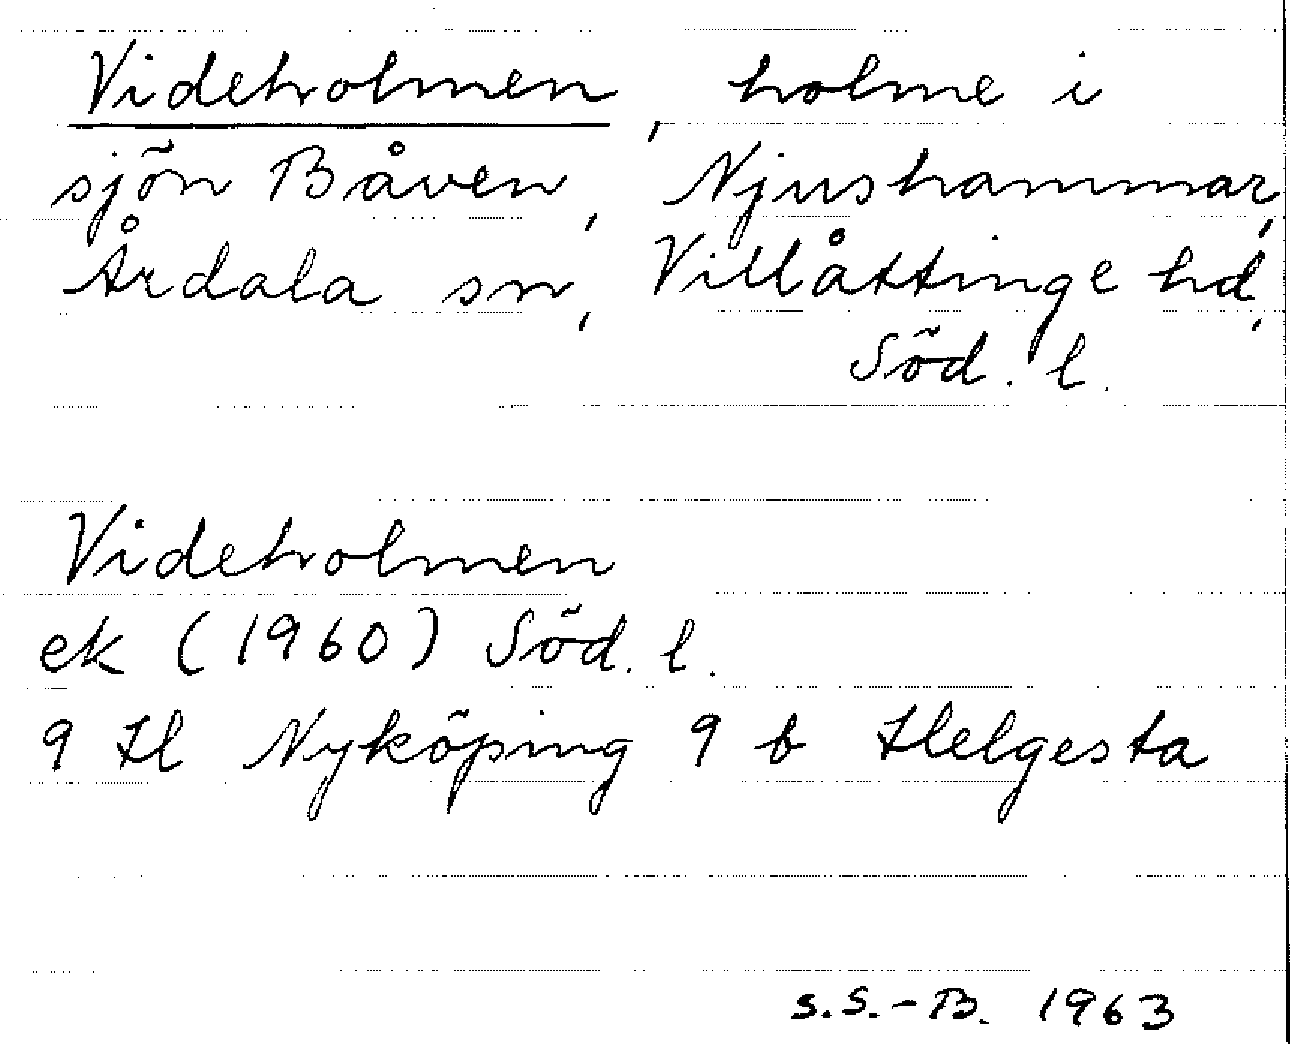 Videholmen, holme i
sjön Båven, Njushammar,
Årdala sn, Villåttinge hd,
Söd. l.
Videholmen
ek (1960) Söd. l.
9 H Nyköping 9 b Helgesta
S.S.-B. 1963